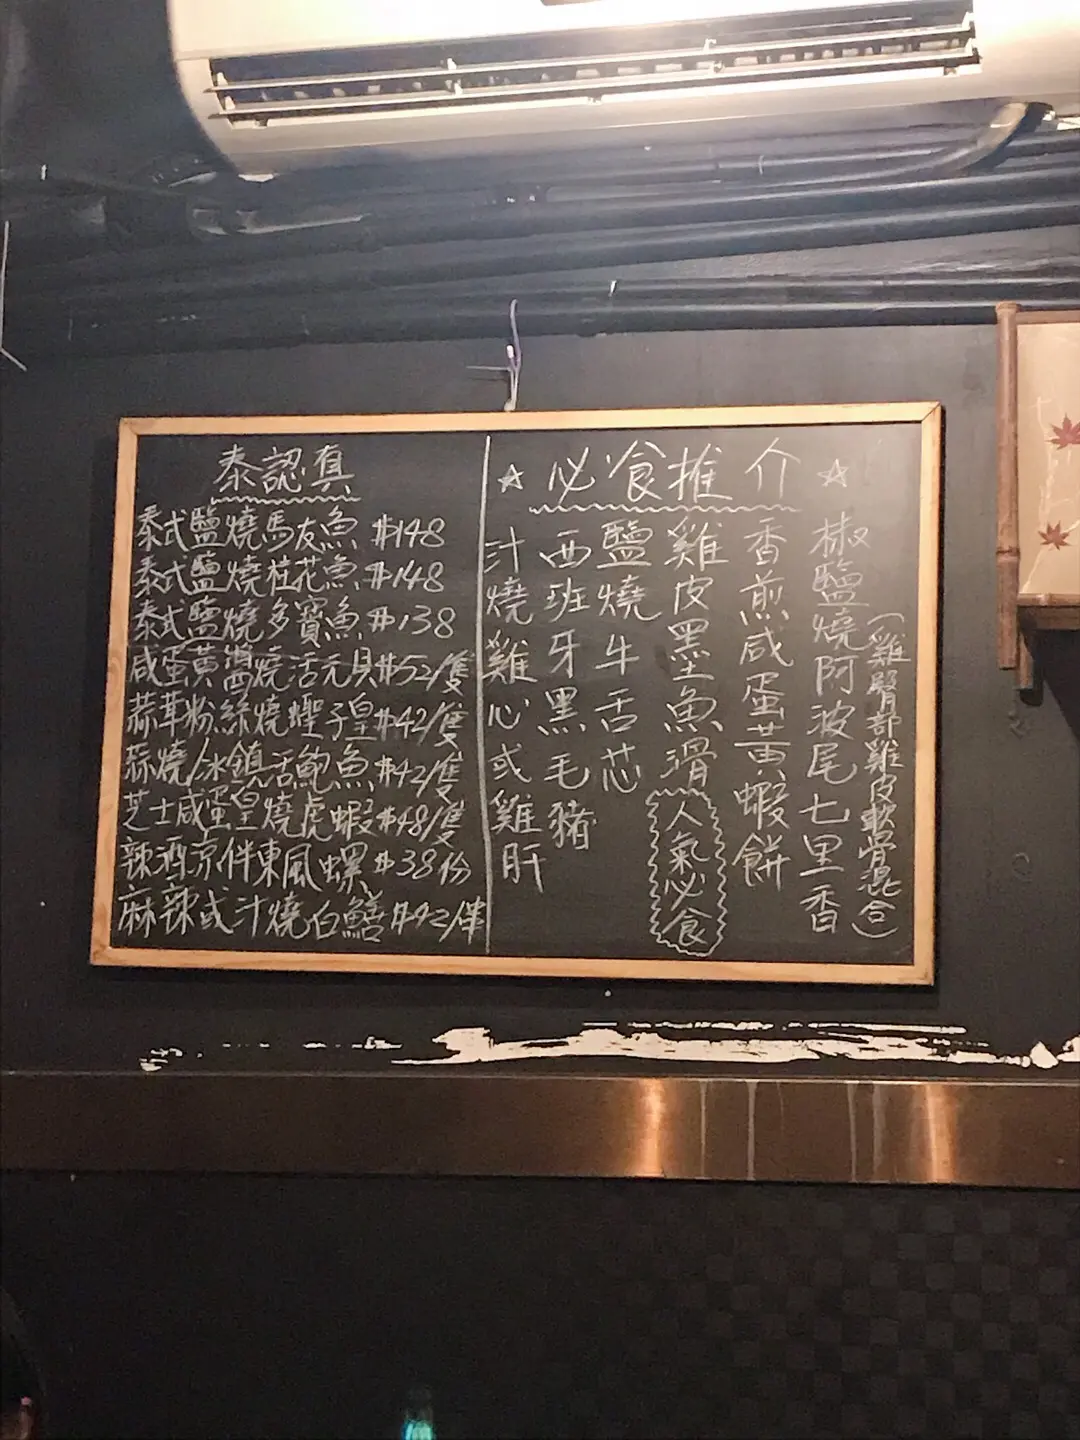 泰認真
泰式鹽燒馬友魚 $148
泰式鹽燒桂花魚 $148
泰式鹽燒多寶魚 $138
咸蛋黃醬燒活元貝 $52/隻
蒜茸粉絲燒蟶子皇 $42/隻
蒜燒/冰鎮活鮑魚 $42/隻
芝士咸蛋皇燒虎蝦 $48/隻
辣酒凉伴東風螺 $38份
麻辣或汁燒白鱔 $42/件
☆ 必食推介 ☆
椒鹽燒阿波尾七里香
(雞臀部雞皮軟骨混合)
香煎咸蛋黃蝦餅
雞皮墨魚滑 人氣必食
鹽燒牛舌芯
西班牙黑毛豬
汁燒雞心或雞肝